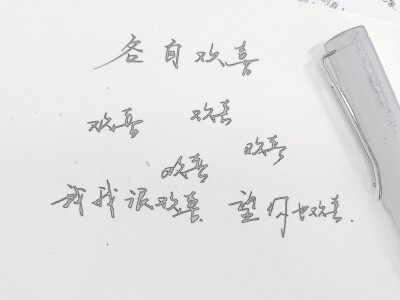 各自欢喜
欢喜 欢喜
欢喜
欢喜
我很欢喜. 望你也欢喜.